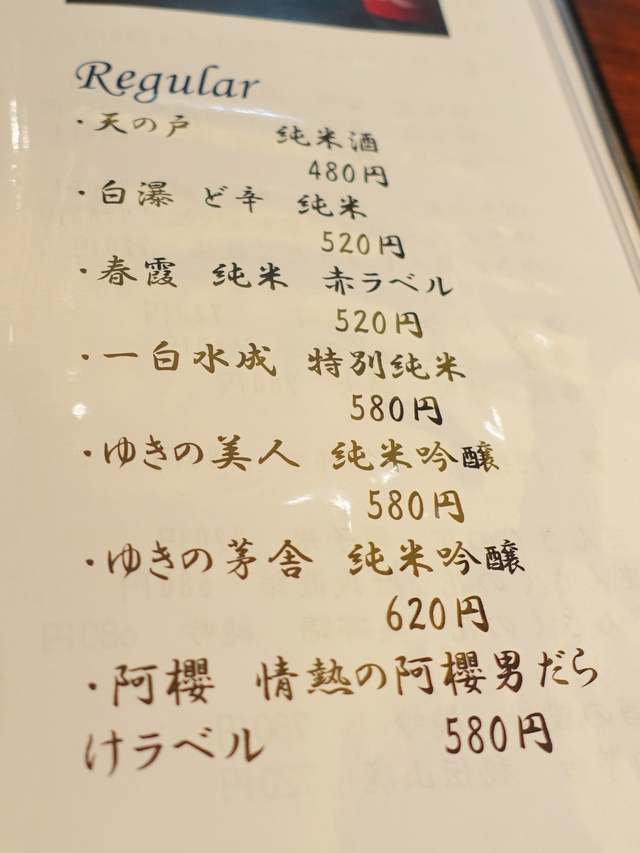 Regular
・天の戸　純米酒
480円
・白瀑　ど辛　純米
520円
・春霞　純米　赤ラベル
520円
・一白水成　特別純米
580円
・ゆきの美人　純米吟醸
580円
・ゆきの茅舎　純米吟醸
620円
・阿櫻　情熱の阿櫻男だら
けラベル　580円